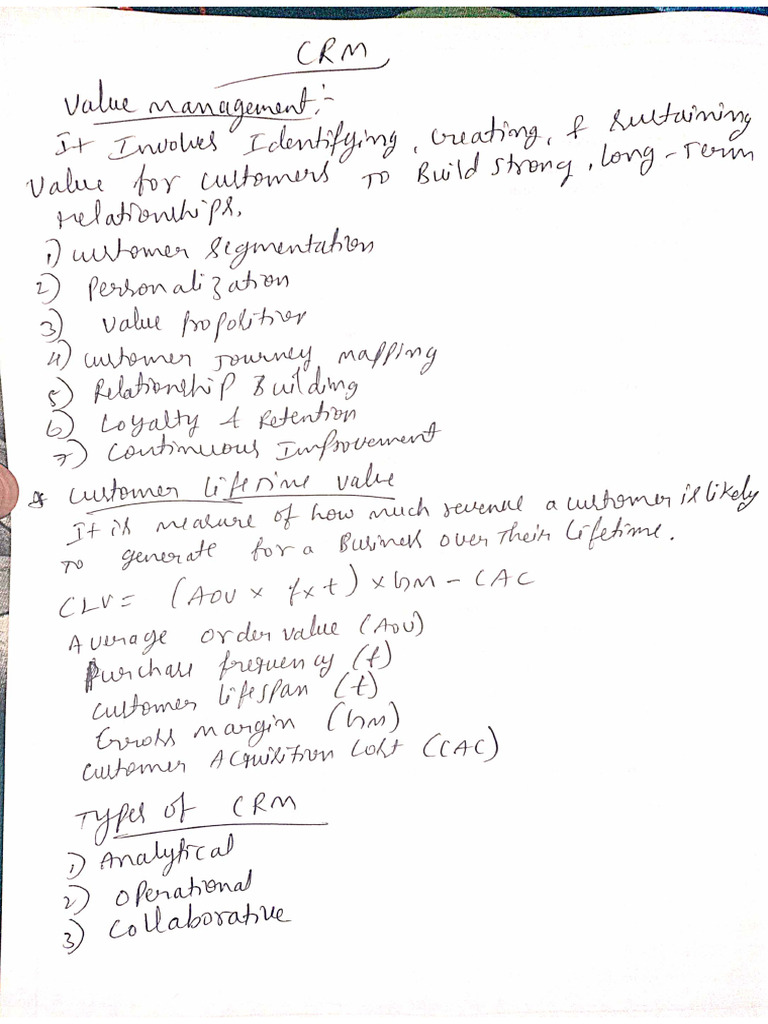 CRM
Value management:-
It Involves Identifying, creating, & sustaining
Value for customers To Build strong, long-Term
relationships.
1) customer segmentation
2) Personalization
3) Value proposition
4) customer Journey mapping
5) Relationship Building
6) Loyalty & Retention
7) Continuous Improvement
* Customer Lifetime Value
It is measure of how much revenue a customer is likely
To generate for a Business over Their Lifetime.
CLV = (AOV x f x t) x GM - CAC
Average order value (AOV)
Purchase frequency (f)
Customer lifespan (t)
Gross margin (GM)
Customer Acquisition Cost (CAC)
Types of CRM
1) Analytical
2) Operational
3) Collaborative